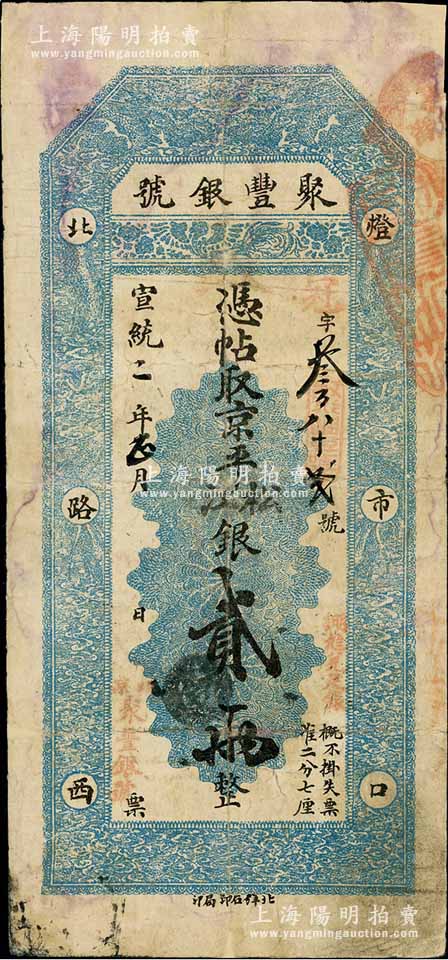 上海陽明拍賣
www.yangmingauction.com
聚豐銀號
燈市口
北路西
字叁百八十貳號
憑帖取京平銀貳兩整
宣統二年正月 日 票
概不掛失票
准二分七厘
聚豐銀號
上海陽明拍賣
www.yangmingauction.com
上海陽明拍賣
www.yangmingauction.com